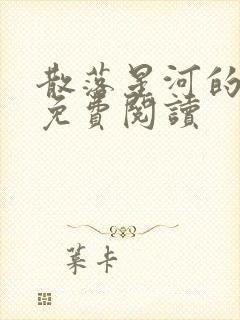 散落星河的
免費閱讀
葉卡